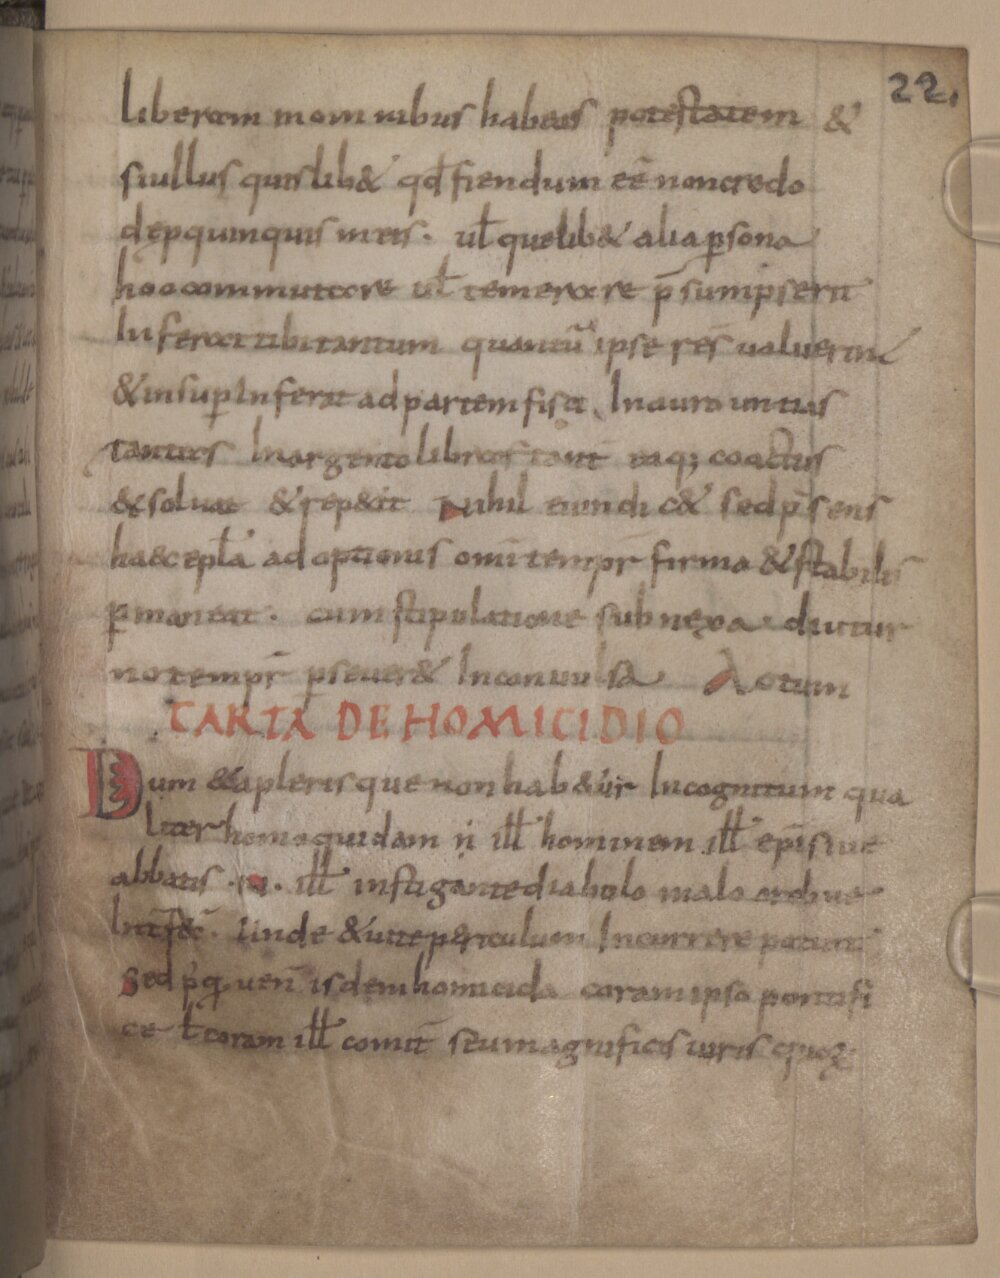 22.
liberam in omnibus habeas potestatem &
siullus quislib& qđ fiendum eē noncredo
dępquinquis meis. uł quelib& alia ꝑsona
hoc commutare uł temerare p̄sumpserit
Inferat tibi tantum quantū ipse res̄ ualuerint
&insuꝑ Inferat ad partem fisci. In auro untias
tantas Inargento libras tant̄ eaq; coactus
&soluat &rep&it Nihil euindic& sed p̄sens
haec epl̄a adoptionis omī tempr̄ firma &stabilis
ꝑmaneat. cum stipulatione subnexa. diutur
no tempr̄ ꝑseuer& Inconuulsa Actum
CARTA DE HOMICIDIO
Dum &aplerisque non hab&ur Incognitum qua
liter homo quidam n̄ ill̄ hominem ill̄ epī siue
abbatis .N. ill̄ instigante diabolo malo ordine
Interfec̄. Unde &uite periculum Incurrere potuit
Sed p̄q ueń isdem homicida coram ipso pontifi
ce ł coram ill̄ comit̄ seu magnificis uiris quoꝝ